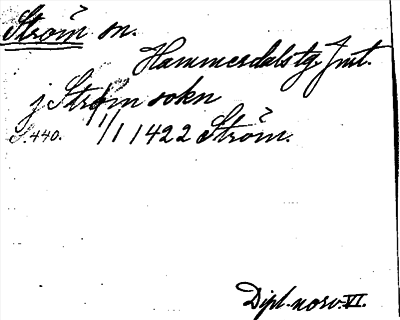 Ström sn.
Hammerdals tg. Jmt.
j Strøm sokn
S. 440. 1/1 1422 Ström.
Dipl. norv. VI.